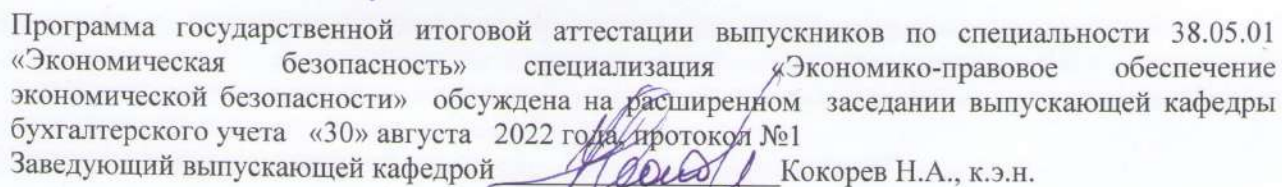 Программа государственной итоговой аттестации выпускников по специальности 38.05.01
«Экономическая безопасность» специализация «Экономико-правовое обеспечение
экономической безопасности» обсуждена на расширенном заседании выпускающей кафедры
бухгалтерского учета «30» августа 2022 года, протокол №1
Заведующий выпускающей кафедрой Кокорев Н.А., к.э.н.